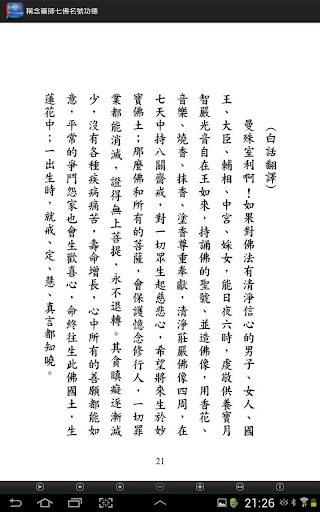 稱念藥師七佛名號功德
（白話翻譯）
曼殊室利啊！如果對佛法有清淨信心的男子、女人、國
王、大臣、輔相、中宮、婇女，能日夜六時，虔敬供養寶月
智嚴光音自在王如來，持誦佛的聖號、並造佛像，用香花、
音樂、燒香、抹香、塗香尊重奉獻，清淨莊嚴佛像四周，在
七天中持八關齋戒，對一切眾生起慈悲心，希望將來生於妙
寶佛土；那麼佛和所有的菩薩，會保護憶念修行人，一切罪
業都能消滅，證得無上菩提，永不退轉。其貪瞋癡逐漸減
少，沒有各種疾病痛苦，壽命增長，心中所有的善願都能如
意，平常的爭鬥怨家也會生歡喜心，命終往生此佛國土，生
蓮花中；一出生時，就戒、定、慧、真言都知曉。
21
21:26